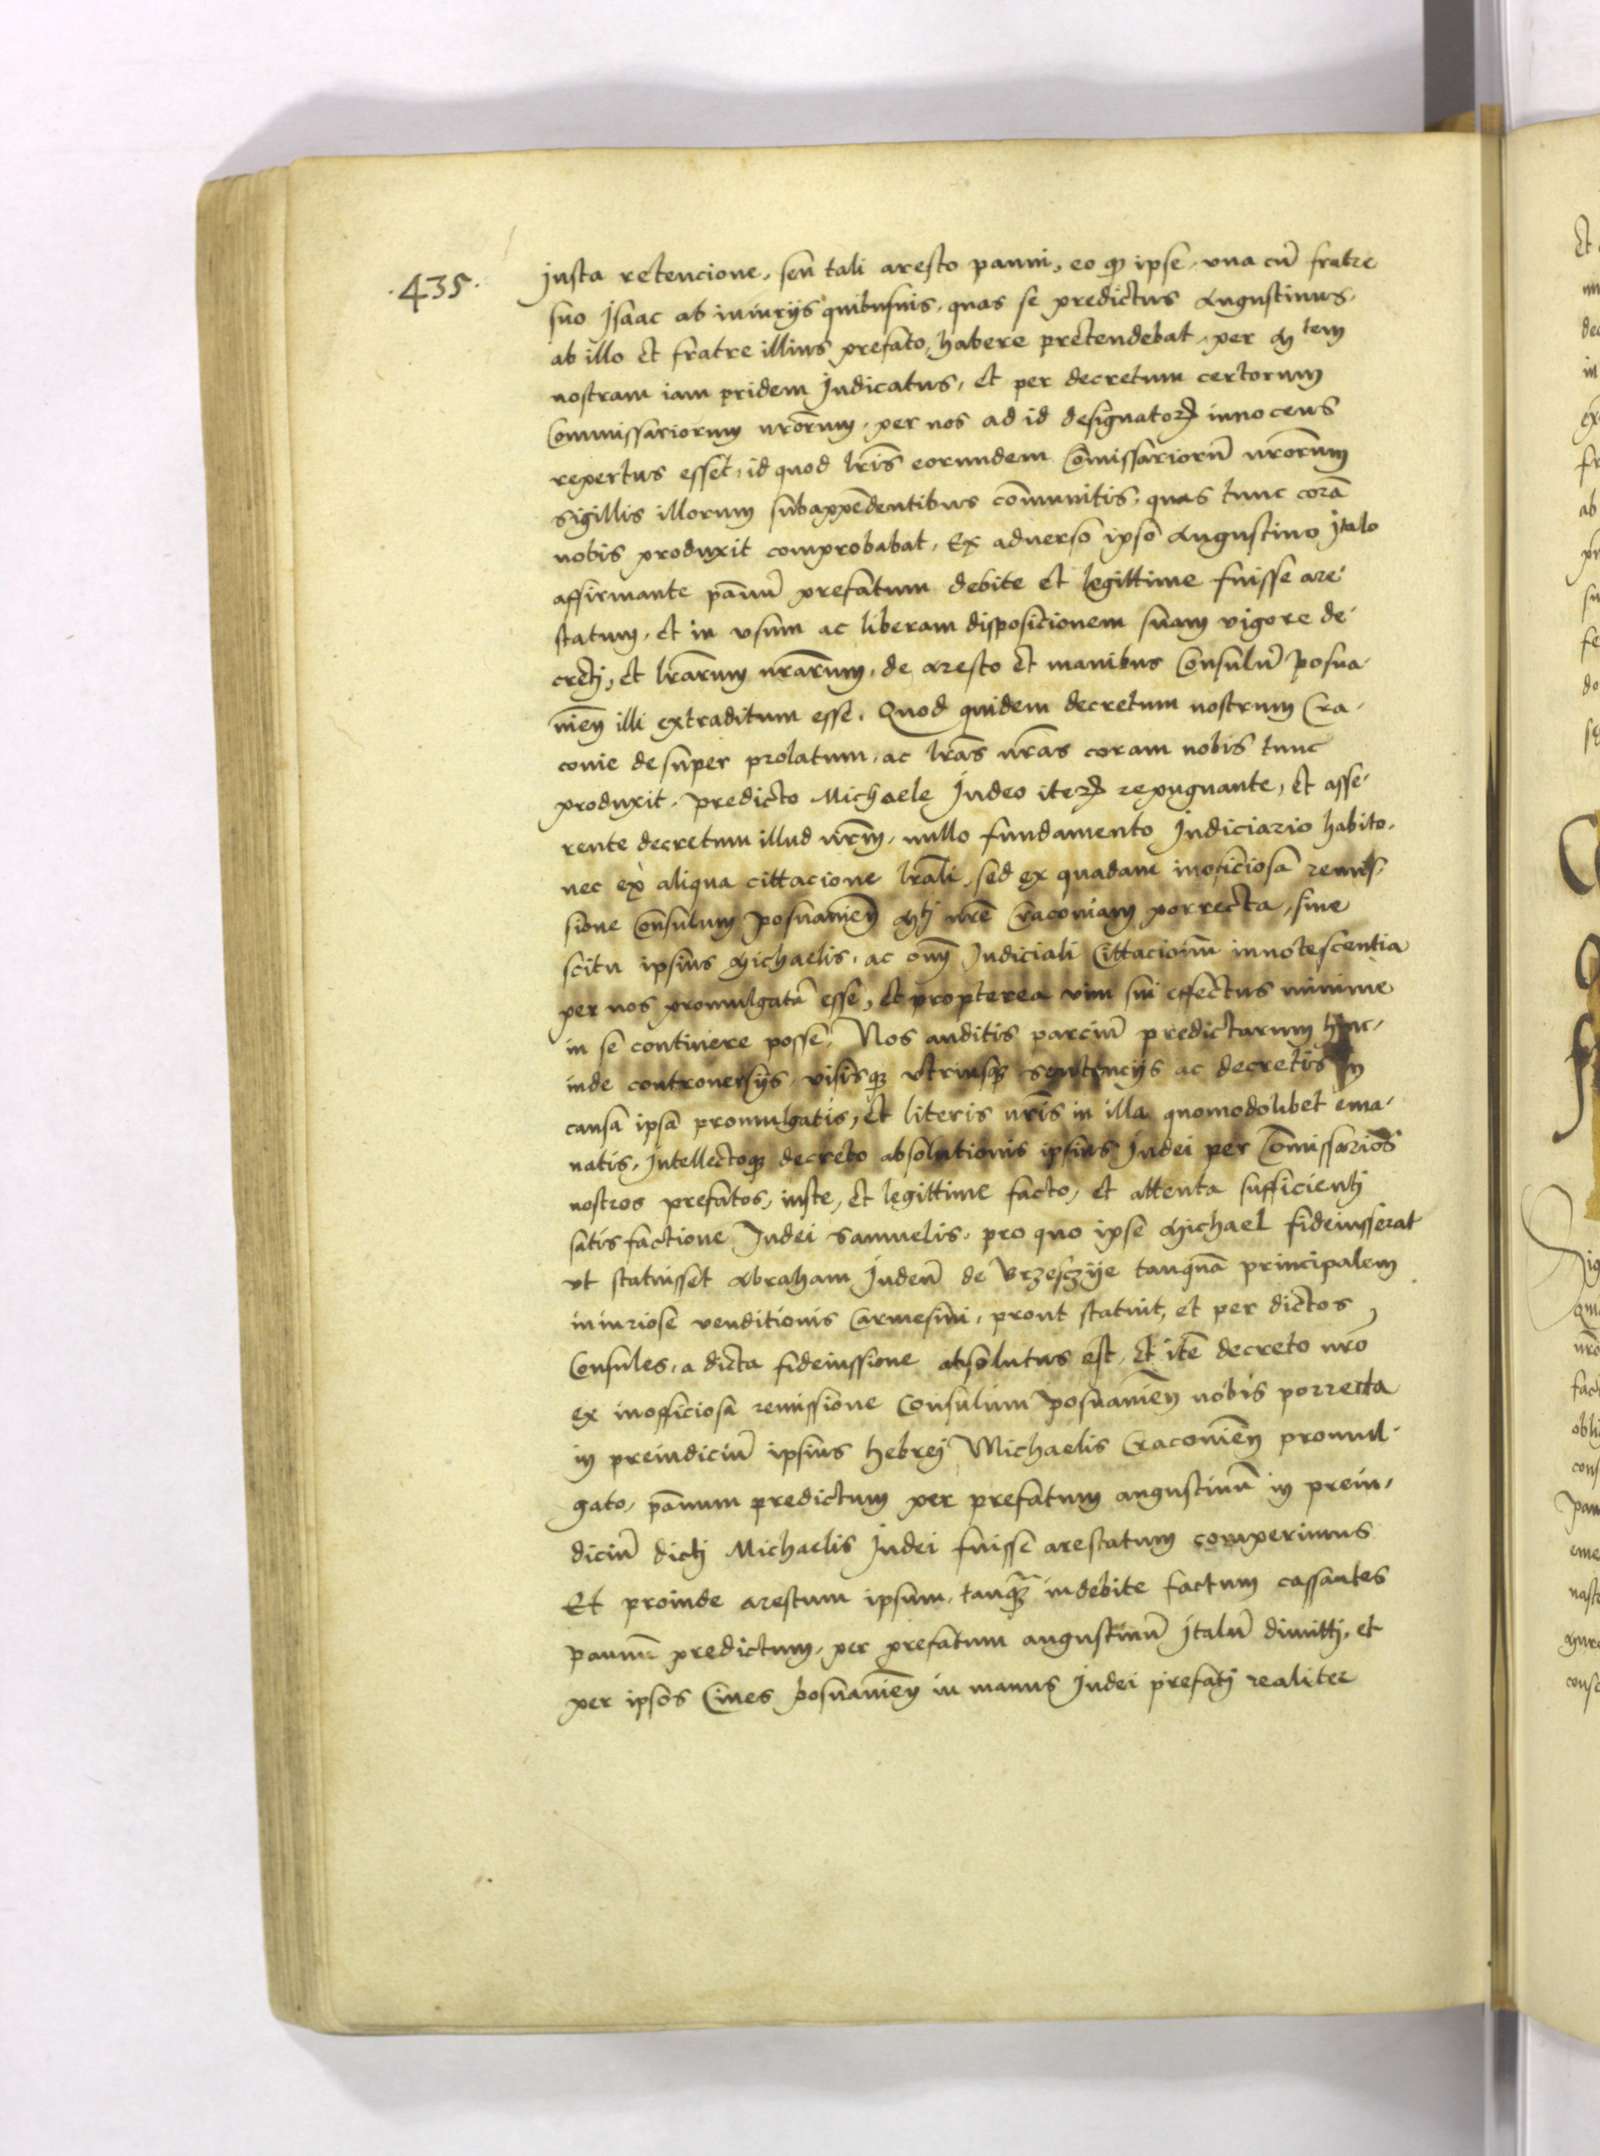 .435.
iusta retencione, seu tali aresto panni, eo q ipse, vna cū fratre
suo Isaac ab iniurijs quibusuis, quas se predictus Augustinus,
ab illo et fratre illius prefato, habere pretendebat, per Mtem
nostram iam pridem Iudicatus, et per decretum certorum
Commissariorum nrōrum, per nos ad id designatoꝝ innocens
repertus esset, id quod lrīs eorundem Cōmissariorū nrōrum
sigillis illorum subappēdentibus cōmunitis, quas tunc corā
nobis produxit comprobabat, Ex aduerso ipso Augustino Italo
affirmante pānū prefatum debite et legittime fuisse are-
statum, et in vsum ac liberam disposicionem suam vigore de-
cretj, et lrārum nrārum, de aresto et manibus Consulū posna-
niēn illi extraditum esse. Quod quidem decretum nostrum Cra-
couie desuper prolatum, ac lrās nrās coram nobis tunc
produxit, predicto Michaele Iudeo iteꝝ repugnante, et asse-
rente decretum illud nrm̄, nullo fundamento Iudiciario habito,
nec ex aliqua cittacione lrāli, sed ex quadam inoficiosa remis-
sione Consulum posnaniēn Mtj nrē Cracouiam porrecta, sine
scitu ipsius Michaelis, ac omj Iudiciali Cittacionū innotescentia
per nos promulgatū esse, et propterea vim sui effectus minime
in se continere posse, Nos auditis parciū predictarum hinc
inde controuersijs, visisqꝫ vtriusqꝫ sentencijs ac decretis in
causa ipsa promulgatis, et literis nrīs in illa quomodolibet ema-
natis, Intellectoqꝫ decreto absolutionis ipsius Iudei per Cōmissarios
nostros prefatos, iuste, et legittime facto, et attenta sufficientj
satisfactione Iudei Samuelis, pro quo ipse Michael fideiusserat
vt statuisset Abraham Iudeū de Brzesczije tanquā principalem
iniuriose venditionis Carmesini, prout statuit, et per dictos
Consules, a dicta fideiussione absolutus est, et itē decreto nrō
ex inofficiosa remissione Consulum posnaniēn nobis porrecta
in preiudiciū ipsius hebrej Michaelis Cracouiēn promul-
gato, pānum predictum per prefatum augustinū in preiu-
diciū dictj Michaelis Iudei fuisse arestatum comperimus
Et proinde arestum ipsum, tanqꝫ indebite factum cassantes
pannū predictum, per prefatum augustinū Italū dimittj, et
per ipsos Ciues posnaniēn in manus Iudei prefatj realiter